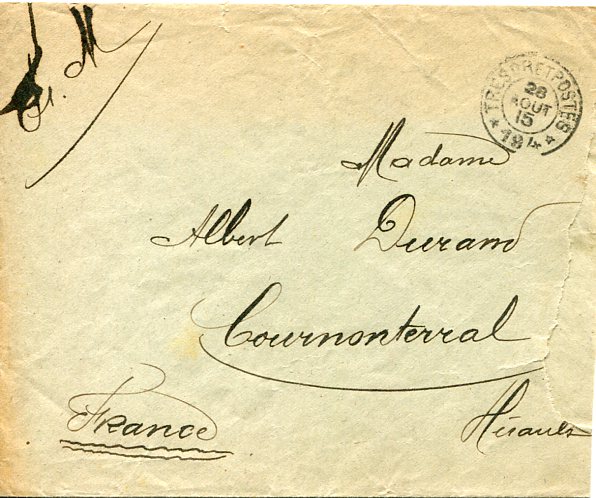 F. M
TRESOR ET POSTES
28
AOUT
15
* 194 *
Madame
Albert Durand
Cournonterral
France
Hérault